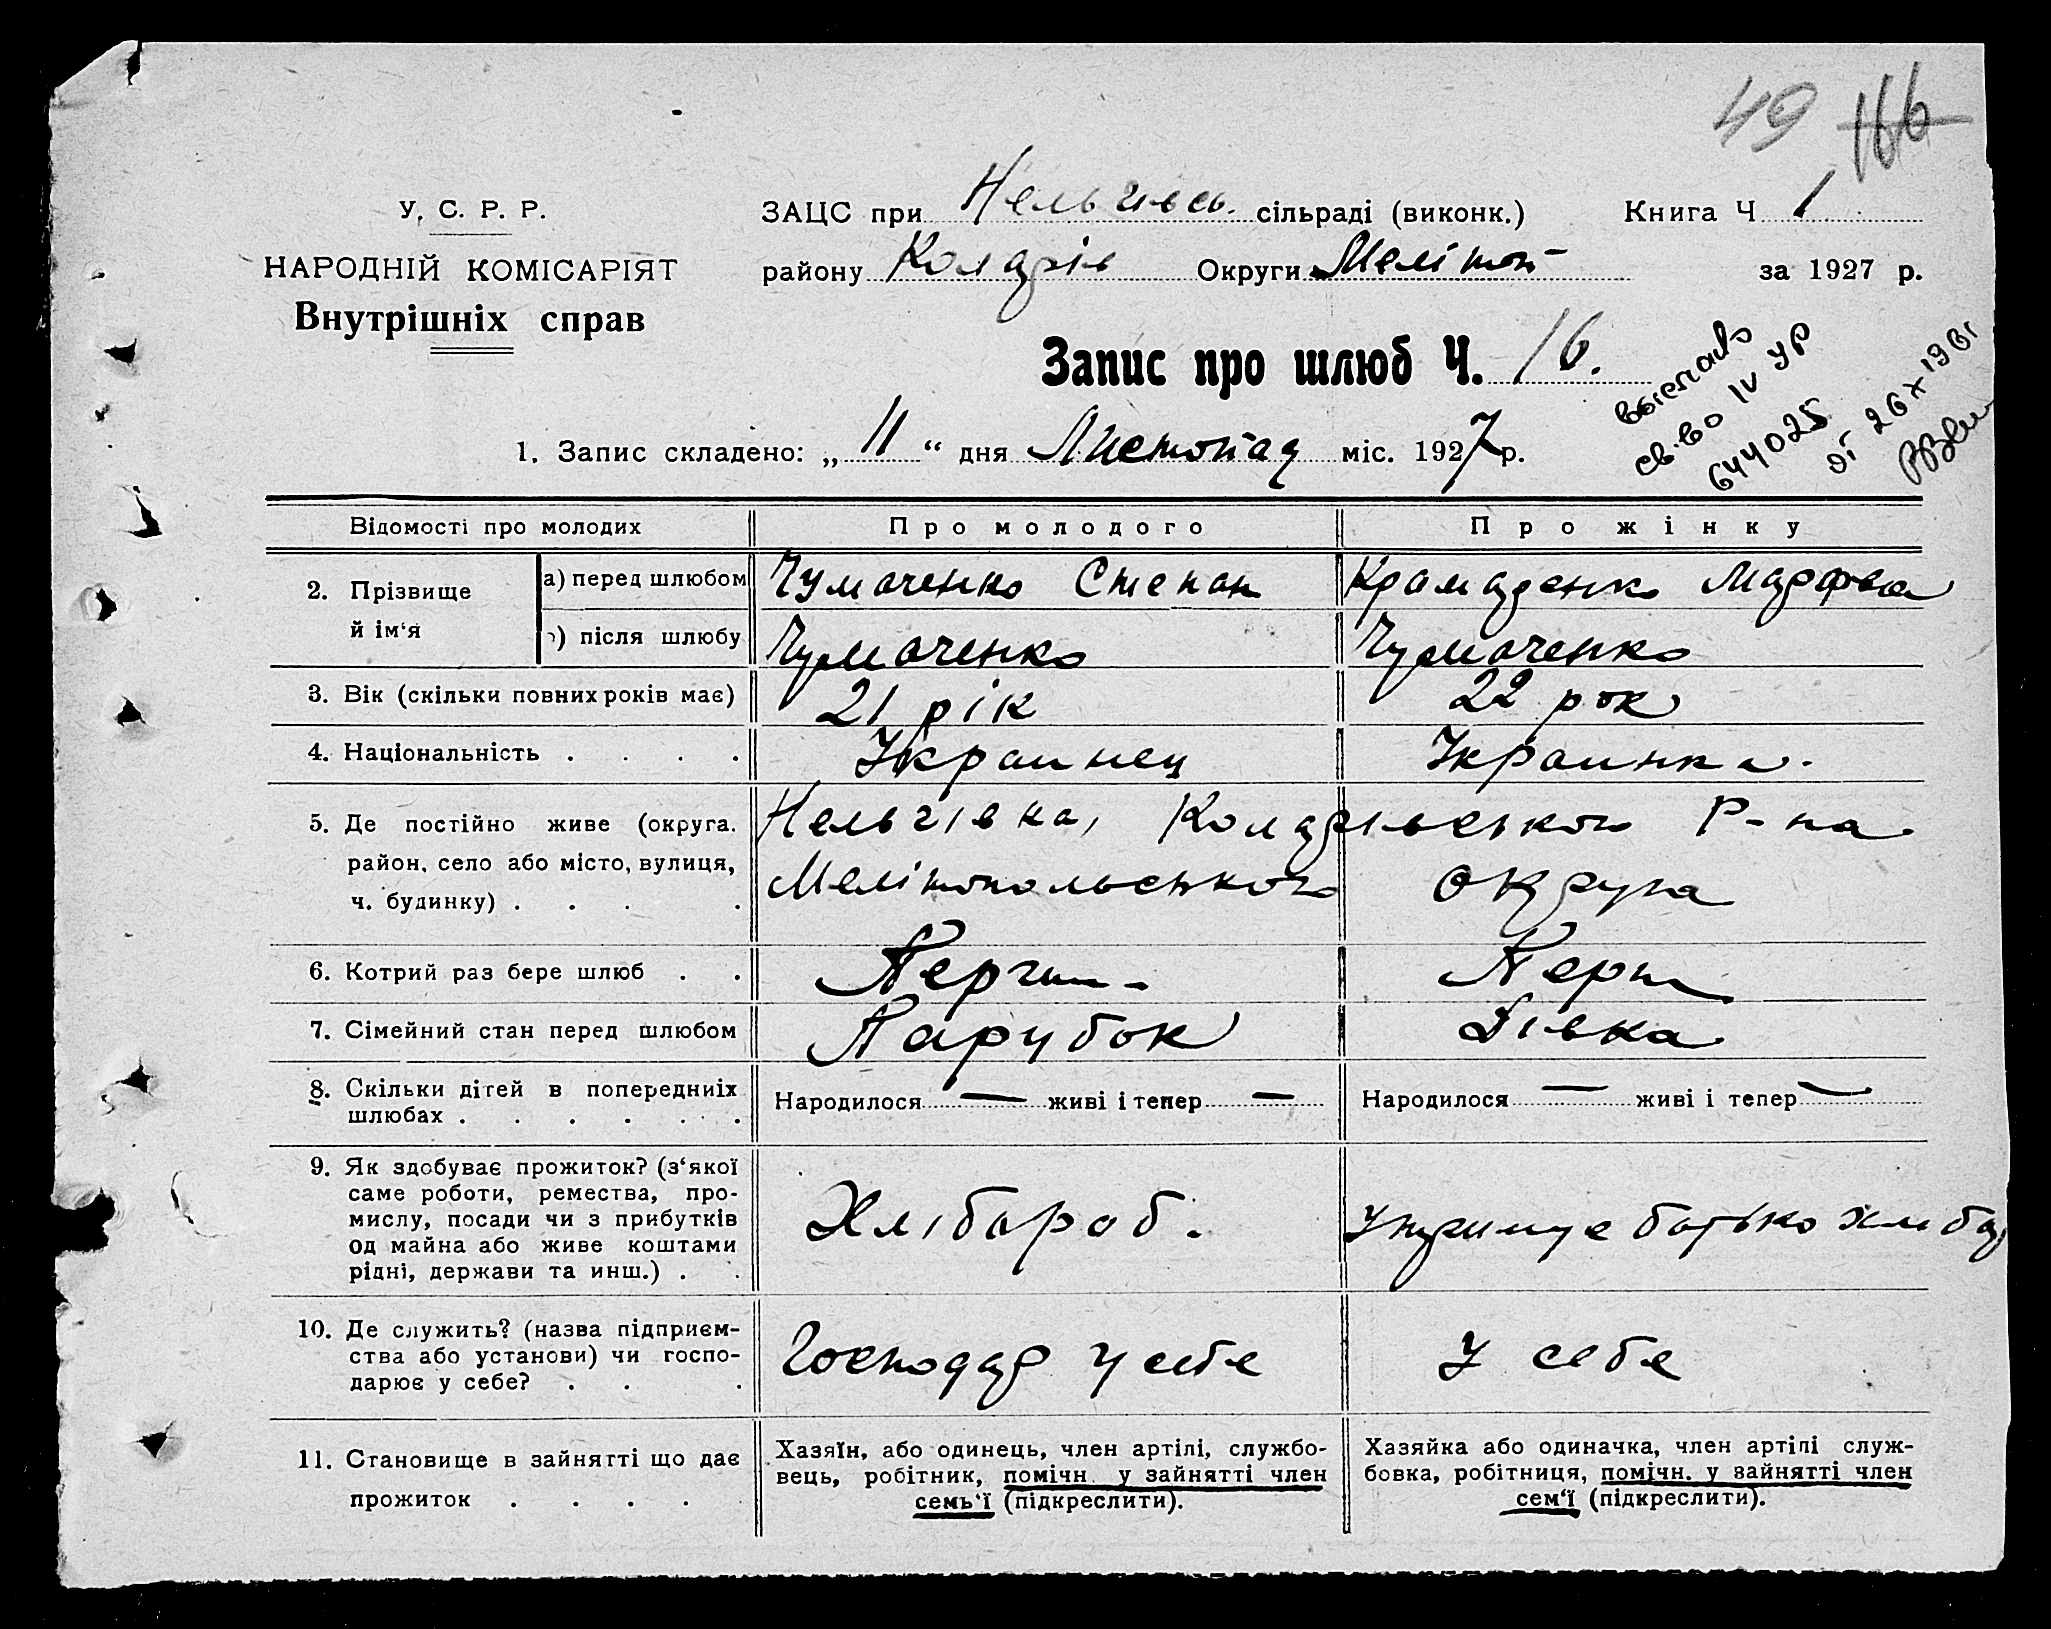 49 166
У. С. Р. Р.
НАРОДНІЙ КОМІСАРІЯТ
Внутрішніх справ
ЗАЦС при Нельгівсь. сільраді (виконк.) Книга Ч 1
району Коларів Округи Мелітоп за 1927 р.
Запис про шлюб Ч. 16.
выслано
св-во IV УР
644025
от 26 X 1961
1. Запис складено: „ 11 “ дня Листопад міс. 1927 р.
Відомості про молодих Про молодого Про жінку
2. Прізвище й ім‘я а) перед шлюбом Чумаченко Степан Крамаренко Марфа
б) після шлюбу Чумаченко Чумаченко
3. Вік (скільки повних років має) 21 рік 22 рок
4. Національність . . . . Украинец Украинка.
5. Де постійно живе (округа. Нельгівка, Коларівського Р-на
район, село або місто, вулиця, Мелітопольського округа
ч. будинку) . . . .
6. Котрий раз бере шлюб . . Перши Перш
7. Сімейний стан перед шлюбом Парубок Дівка
8. Скільки дітей в попередниіх Народилося — живі і тепер — Народилося — живі і тепер —
шлюбах . . . . . .
9. Як здобуває прожиток? (з‘якої
саме роботи, ремества, про-
мислу, посади чи з прибутків Хлібороб. Утримує батько хліб
од майна або живе коштами
рідні, держави та инш.) . .
10. Де служить? (назва підприєм-
ства або установи) чи госпо- Господар у себе У себе
дарює у себе? . . .
11. Становище в зайнятті що дає Хазяїн, або одинець, член артілі, службо- Хазяйка або одиначка, член артілі служ-
прожиток . . . . вець, робітник, помічн. у зайнятті член бовка, робітниця, помічн. у зайнятті член
семь‘ї (підкреслити). сем‘ї (підкреслити).